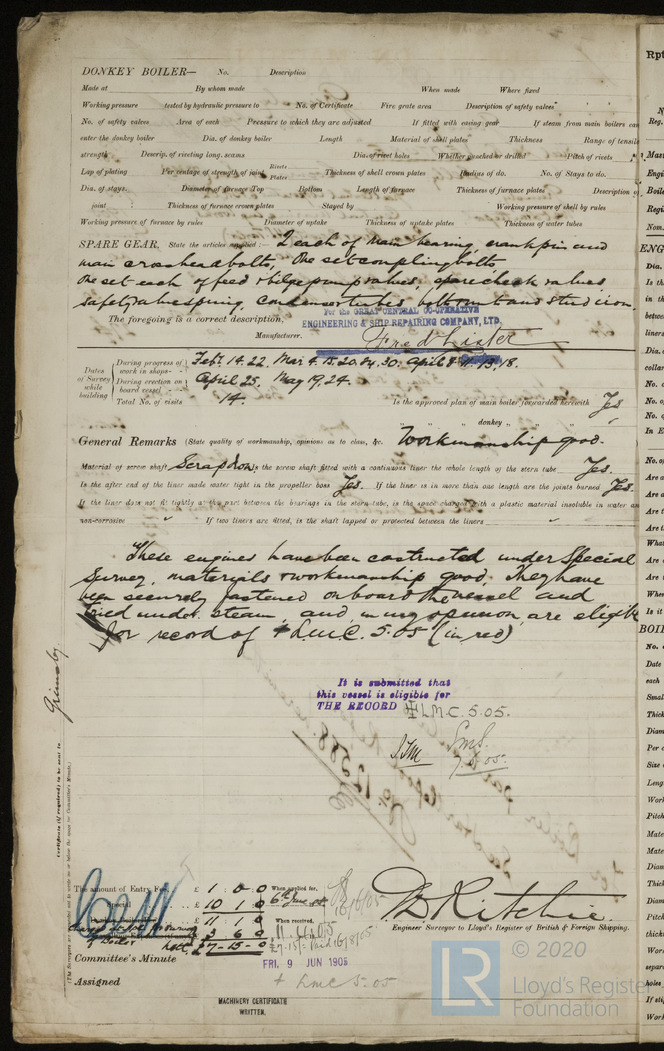 DONKEY BOILER— No. Description
Made at By whom made When made Where fixed
Working pressure tested by hydraulic pressure to No. of Certificate Fire grate area Description of safety valves
No. of safety valves Area of each Pressure to which they are adjusted If fitted with easing gear If steam from main boilers can
enter the donkey boiler Dia. of donkey boiler Length Material of shell plates Thickness Range of tensile
strength Descrip. of riveting long. seams Dia. of rivet holes Whether punched or drilled Pitch of rivets
Lap of plating Per centage of strength of joint Rivets Plates Thickness of shell crown plates Radius of do. No. of Stays to do.
Dia. of stays. Diameter of furnace Top Bottom Length of furnace Thickness of furnace plates Description of
joint Thickness of furnace crown plates Stayed by Working pressure of shell by rules
Working pressure of furnace by rules Diameter of uptake Thickness of uptake plates Thickness of water tubes
SPARE GEAR. State the articles supplied:— 2 each of main bearing, crank pin and
main crosshead bolts, One set coupling bolts
One set each of feed & bilge pump valves, spare check valves
safety valve spring, condenser tubes bolts nuts and stud iron.
The foregoing is a correct description,
For the GREAT CENTRAL CO-OPERATIVE
ENGINEERING & SHIP REPAIRING COMPANY, LTD.
Manufacturer.
Dates of Survey while building
During progress of work in shops - - Feb. 14. 22, Mar 4. 15. 20. 24. 30. April 8 11. 13. 18.
During erection on board vessel - - April 25, May 19, 24
Total No. of visits 14. Is the approved plan of main boiler forwarded herewith Yes
" " donkey " "
General Remarks (State quality of workmanship, opinions as to class, &c. Workmanship good.
Material of screw shaft Scrap Iron Is the screw shaft fitted with a continuous liner the whole length of the stern tube Yes.
Is the after end of the liner made water tight in the propeller boss Yes. If the liner is in more than one length are the joints burned Yes.
If the liner does not fit tightly at the part between the bearings in the stern tube, is the space charged with a plastic material insoluble in water and
non-corrosive " If two liners are fitted, is the shaft lapped or protected between the liners "
These engines have been costructed under Special
Survey, materials & workmanship good. They have
been securely fastened on board the vessel and
tried under steam, and in my opinion, are eligible
for record of + L.M.C. 5.05 (in red)
It is submitted that
this vessel is eligible for
THE RECORD + L.M.C. 5.05.
7.6.05.
Grimsby
Certificate (if required) to be sent to
The amount of Entry Fee. . £ 1 : 0 : 0 When applied for,
Special £ 10 : 1 : 0 6th June
Donkey Boiler Fee £ 11 : 1 : 0 When received,
3 6 0
of Boiler Total £27-15-0
Engineer Surveyor to Lloyd's Register of British & Foreign Shipping.
D Ritchie
Committee's Minute
FRI. 9 JUN 1905
Assigned + LMC 5.05
MACHINERY CERTIFICATE
WRITTEN.
© 2020
LR
Lloyd's Register
Foundation